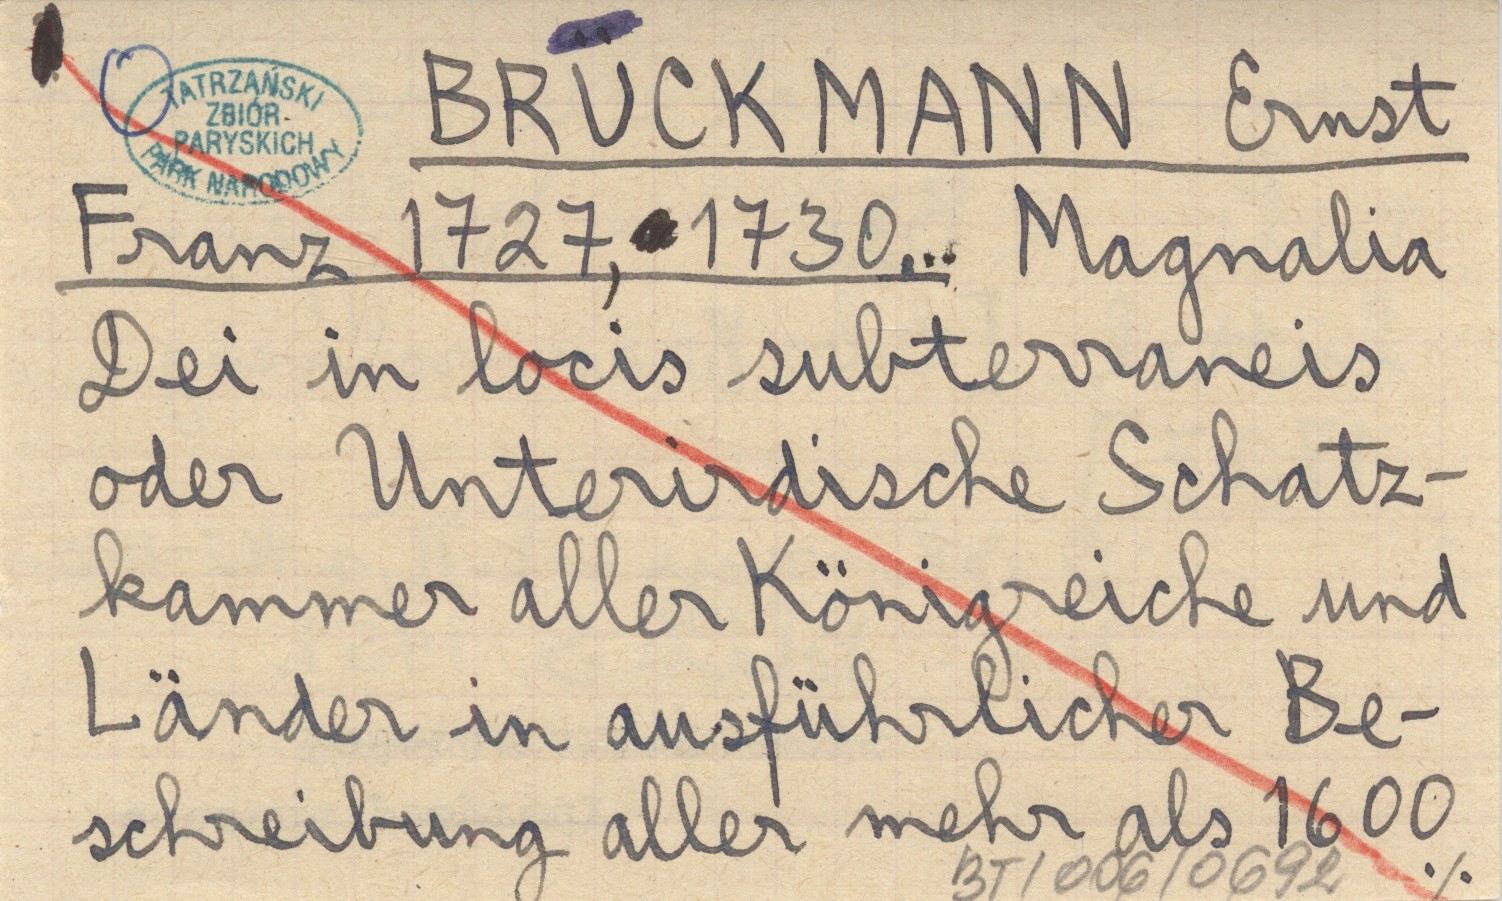 TATRZAŃSKI
ZBIÓR
PARYSKICH
PARK NARODOWY
BRÜCKMANN Ernst
Franz 1727, 1730... Magnalia
Dei in locis subterraneis
oder Unterirdische Schatz-
kammer aller Königreiche und
Länder in ausführlicher Be-
schreibung aller mehr als 1600
BT/006/0692 ./.